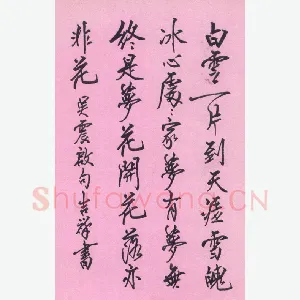 白雲一片到天疆雪魄
冰心處處家夢有夢無
終是夢花開花落亦
非花 吴震啟句吉祥書
ShufaWang.CN